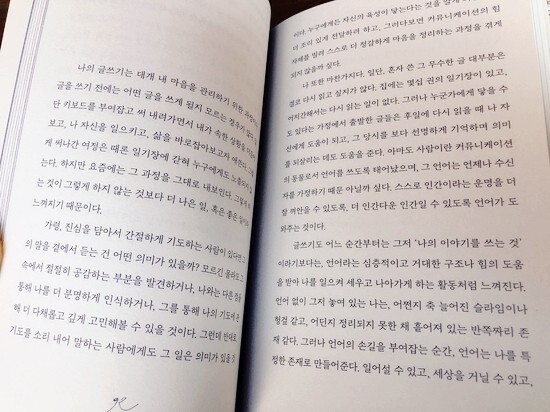 나의 글쓰기는 대개 내 마음을 관리하기 위한
글을 쓰기 전에는 어떤 글을 쓰게 될지 모르는 경우가
단 키보드를 부여잡고 써 내려가면서 내가 속한
보고, 나 자신을 일으키고, 삶을 바로잡아보고자 애쓴다.
게 써나간 여정은 때론 일기장에 갇혀 누구에게도
는다. 하지만 요즘에는 그 과정을 그대로 내보인다.
는 것이 그렇게 하지 않는 것보다 더 나은 일, 혹은 좋은
느껴지기 때문이다.
가령, 진심을 담아서 간절하게 기도하는 사람이 있다면 그
의 말을 곁에서 듣는 건 어떤 의미가 있을까? 모르긴 몰라도
속에서 절절히 공감하는 부분을 발견하거나, 나와는 다른
통해 나를 더 분명하게 인식하거나, 그를 통해 나의 기도에
해 더 다채롭고 깊게 고민해볼 수 있을 것이다. 그런데 반대로
기도를 소리 내어 말하는 사람에게도 그 일은 의미가 있을
92
이다. 누구에게든 자신의 육성이 닿는다는 것을 알게
다 조리 있게 전달하려 하고, 그러다보면 커뮤니케이션의 힘
자체를 빌려 스스로 더 정갈하게 마음을 정리하는 과정을 겪게
되지 않을까 싶다.
나 또한 마찬가지다. 일단, 혼자 쓴 그 무수한 글 대부분은
결코 다시 읽고 싶지가 않다. 집에는 몇십 권의 일기장이 있고,
어지간해서는 다시 읽는 일이 없다. 그러나 누군가에게 닿을 수
도 있다는 가정에서 출발한 글들은 후일에 다시 읽을 때 나 자
신에게 도움이 되고, 그 당시를 보다 선명하게 기억하며 의미
를 되살리는 데도 도움을 준다. 아마도 사람이란 커뮤니케이션
의 동물로서 언어를 쓰도록 태어났으며, 그 언어는 언제나 수신
자를 가정하기 때문 아닐까 싶다. 스스로 인간이라는 운명을 더
잘 껴안을 수 있도록, 더 인간다운 인간일 수 있도록 언어가 도
와주는 것이다.
글쓰기도 어느 순간부터는 그저 '나의 이야기를 쓰는 것'
이라기보다는, 언어라는 심층적이고 거대한 구조나 힘의 도움
을 받아 나를 일으켜 세우고 나아가게 하는 활동처럼 느껴진다.
언어 없이 그저 놓여 있는 나는, 어쩐지 축 늘어진 슬라임이나
헝겊 같고, 어딘지 정리되지 못한 채 흩어져 있는 반쪽짜리 존
재 같다. 그러나 언어의 손길을 부여잡는 순간, 언어는 나를 특
정한 존재로 만들어준다. 일어설 수 있고, 세상을 거닐 수 있고,